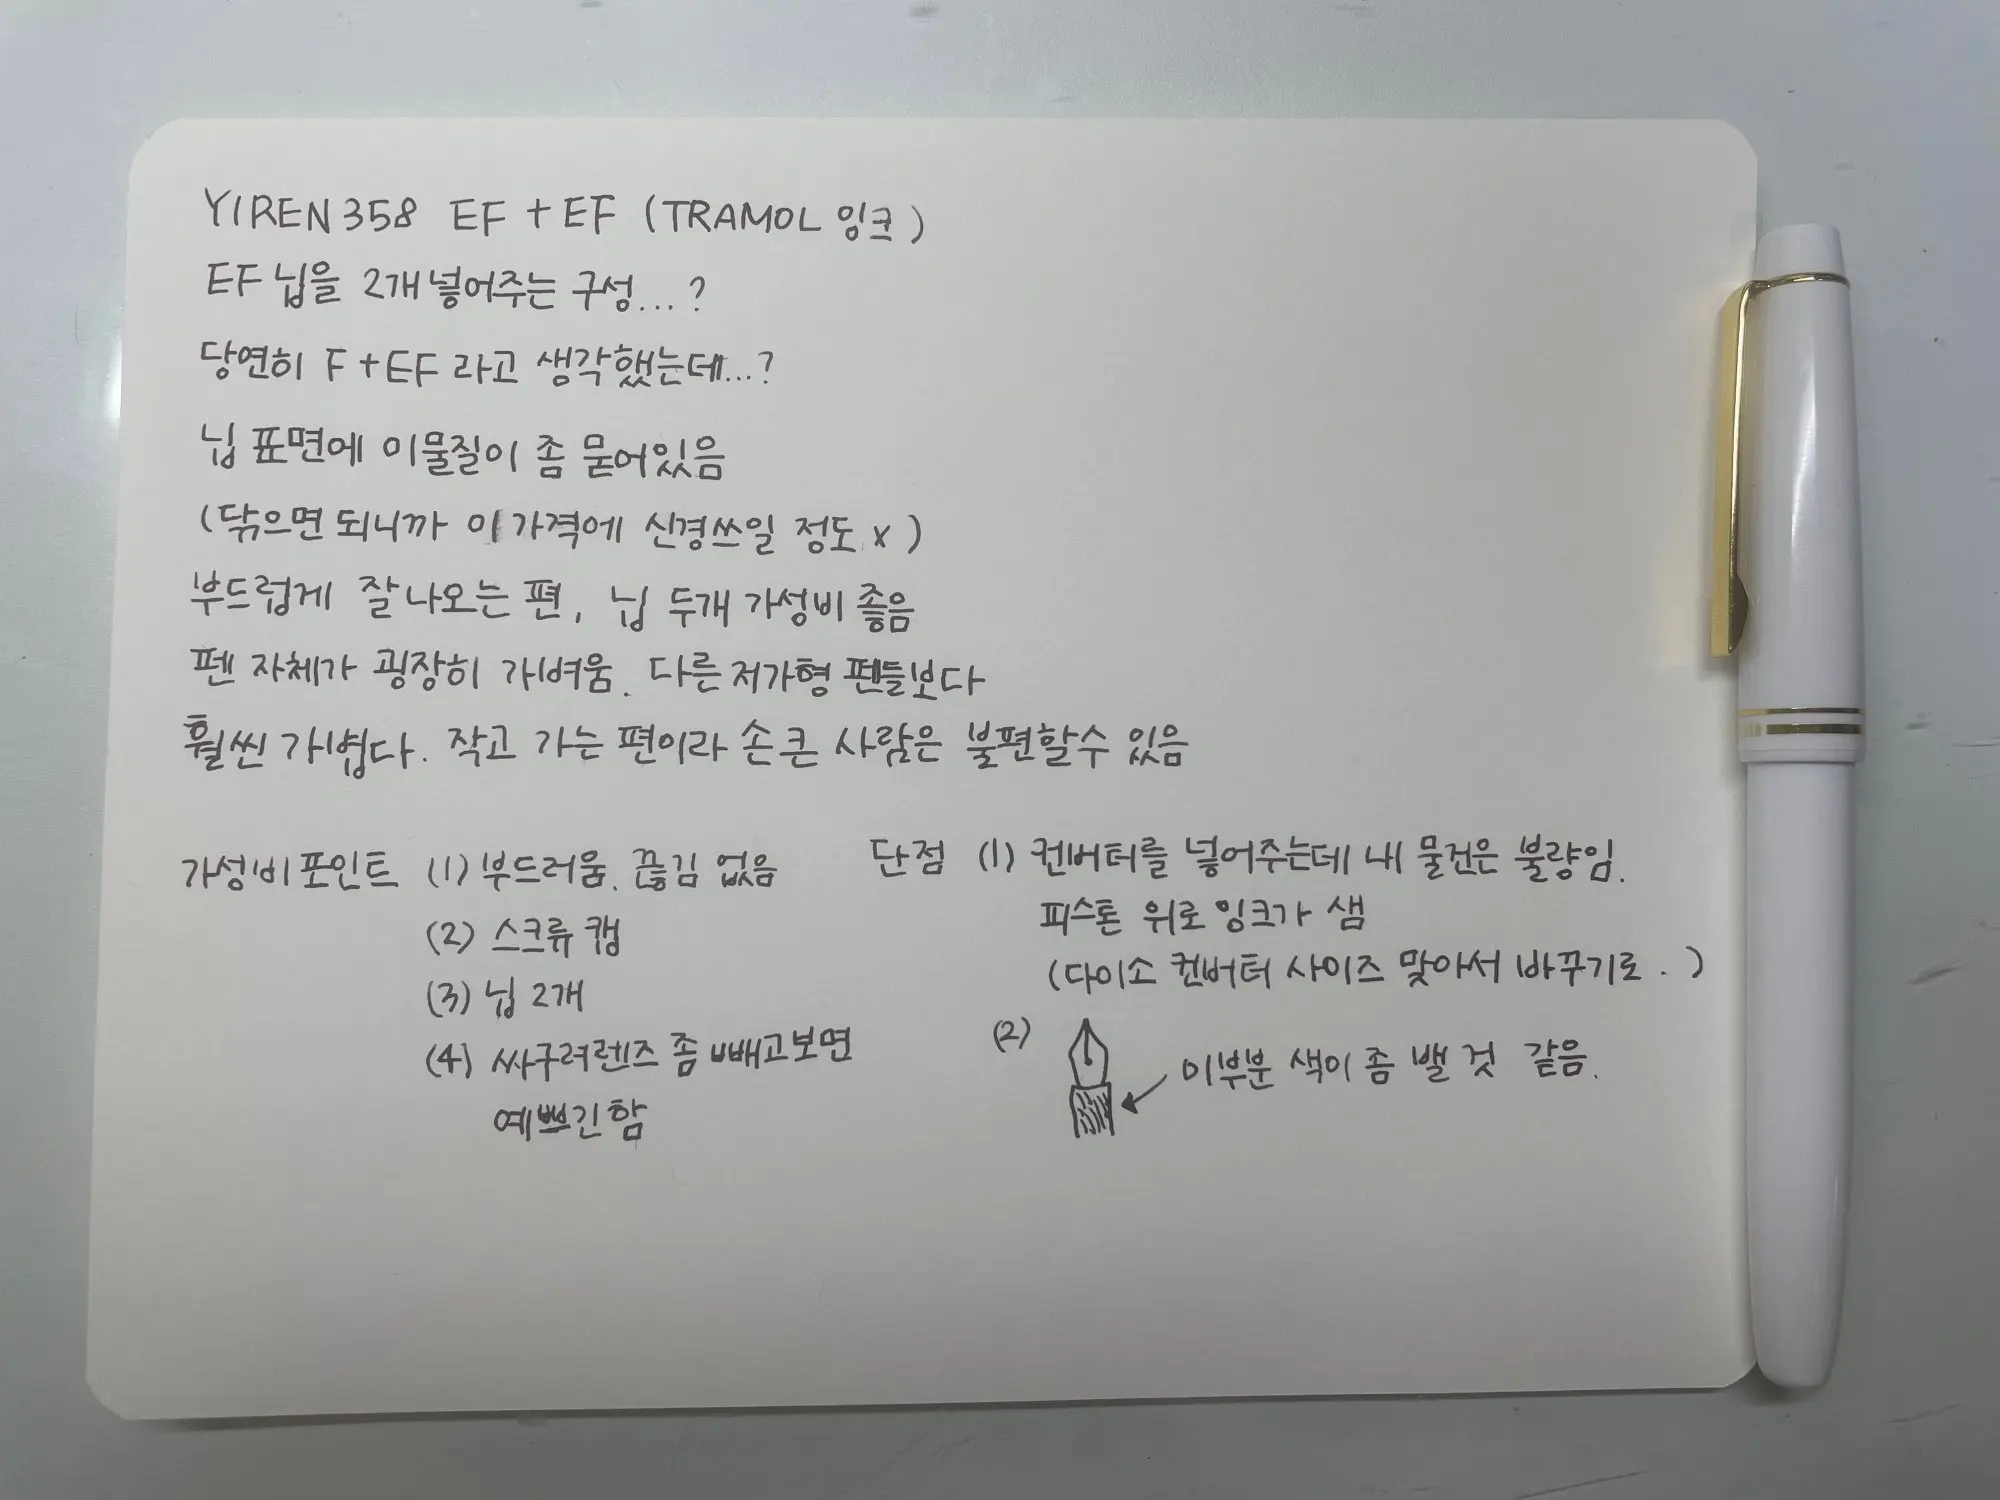 YIREN 358 EF + EF (TRAMOL 잉크)
EF 닙을 2개 넣어주는 구성...?
당연히 F + EF 라고 생각했는데...?
닙 표면에 이물질이 좀 묻어있음
(닦으면 되니까 이 가격에 신경쓰일 정도 x)
부드럽게 잘 나오는 편, 닙 두개 가성비 좋음
펜 자체가 굉장히 가벼움. 다른 저가형 펜들보다
훨씬 가볍다. 작고 가는 편이라 손 큰 사람은 불편할수 있음
가성비 포인트 (1) 부드러움. 끊김 없음
(2) 스크류 캡
(3) 닙 2개
(4) 싸구려렌즈 좀 빼고보면
예쁘긴함
단점 (1) 컨버터를 넣어주는데 내 물건은 불량임.
피스톤 위로 잉크가 샘
(다이소 컨버터 사이즈 맞아서 바꾸기로.)
(2) 이부분 색이 좀 밸 것 같음.